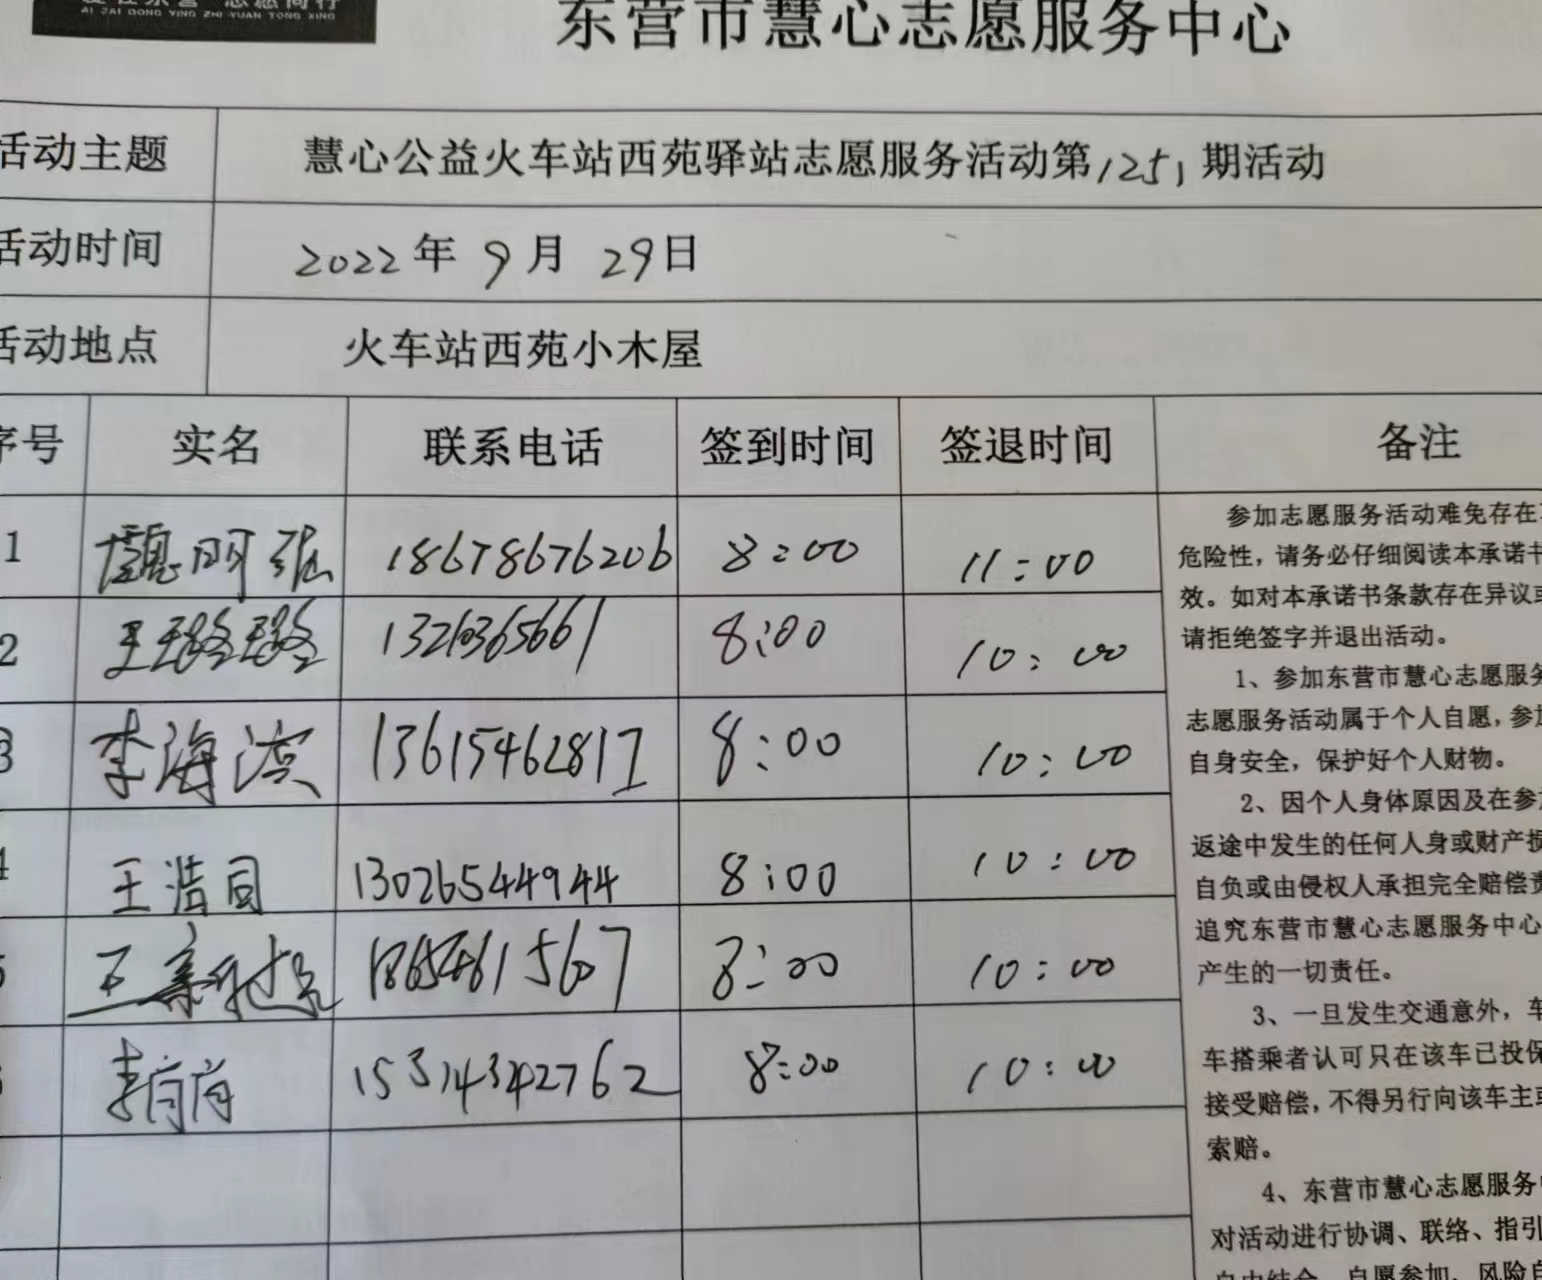 爱在东营 志愿同行
AI ZAI DONG YING ZHI YUAN TONG XING
东营市慧心志愿服务中心
活动主题 慧心公益火车站西苑驿站志愿服务活动第1251期活动
活动时间 2022年9月29日
活动地点 火车站西苑小木屋
序号 实名 联系电话 签到时间 签退时间 备注
1 18678676206 8:00 11:00
2 王璐璐 8:00 10:00
3 李海滨 13615462817 8:00 10:00
4 王浩同 13026544944 8:00 10:00
5 18654615607 8:00 10:00
李肖肖 15314342762 8:00 10:00
参加志愿服务活动难免存在
危险性，请务必仔细阅读本承诺书
效。如对本承诺书条款存在异议或
请拒绝签字并退出活动。
1、参加东营市慧心志愿服务
志愿服务活动属于个人自愿，参加
自身安全，保护好个人财物。
2、因个人身体原因及在参加
返途中发生的任何人身或财产损
自负或由侵权人承担完全赔偿责
追究东营市慧心志愿服务中心
产生的一切责任。
3、一旦发生交通意外，车
车搭乘者认可只在该车已投保
接受赔偿，不得另行向该车主或
索赔。
4、东营市慧心志愿服务中
对活动进行协调、联络、指引
自由结合、自愿参加、风险自